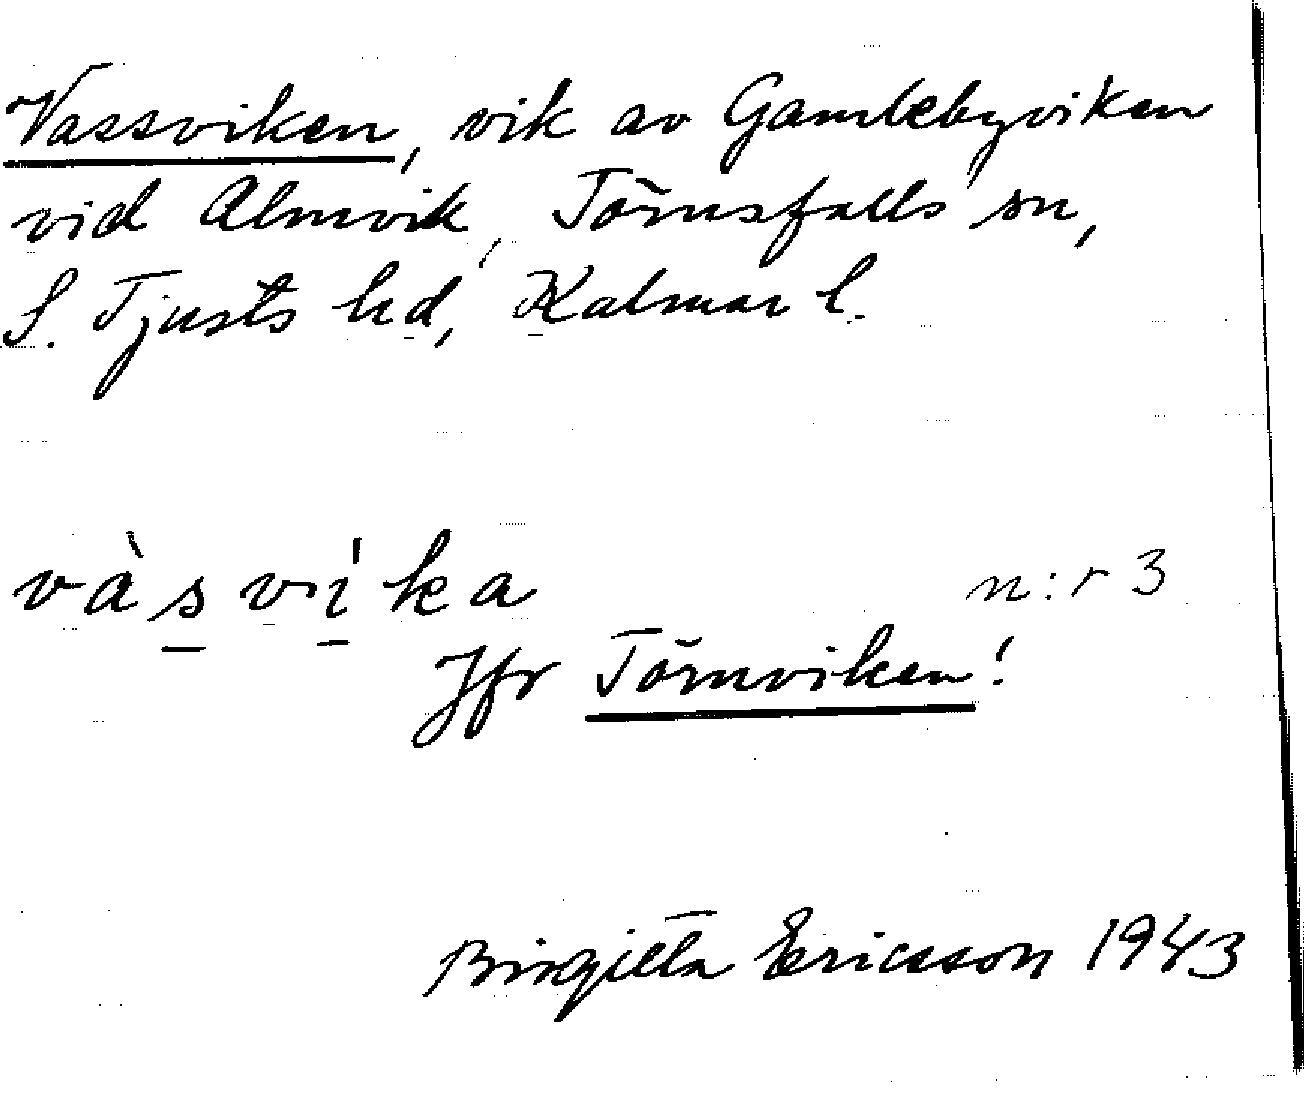 Vassviken, vik av Gamlebyviken
vid Almvik, Törnsfalls sn,
S. Tjusts hd, Kalmar l.
vàsvìka n:r 3
Jfr Törnviken!
Birgitta Ericsson 1943